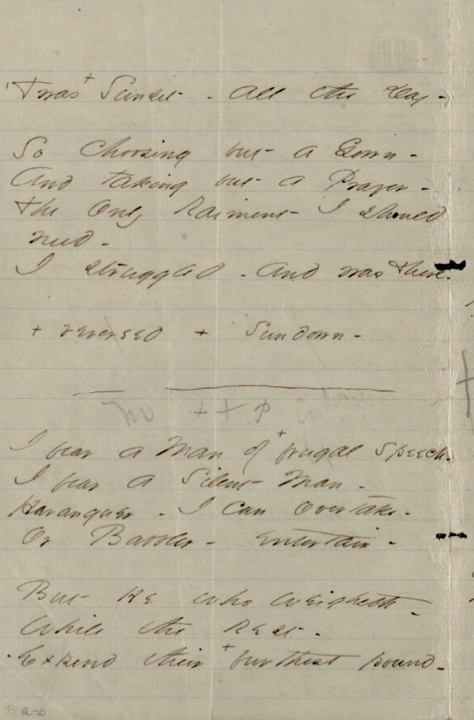 'Twas + Sunset - All the Day -
So choosing but a Gown -
And taking but a Prayer -
The Only Raiment I should
need -
I struggled - And was There -
+ reversed + Sundown -
I fear a Man of + frugal Speech -
I fear a Silent Man -
Haranguer - I can overtake -
Or Babbler - entertain -
But He who weigheth -
While the Rest -
Expend their + furthest pound -